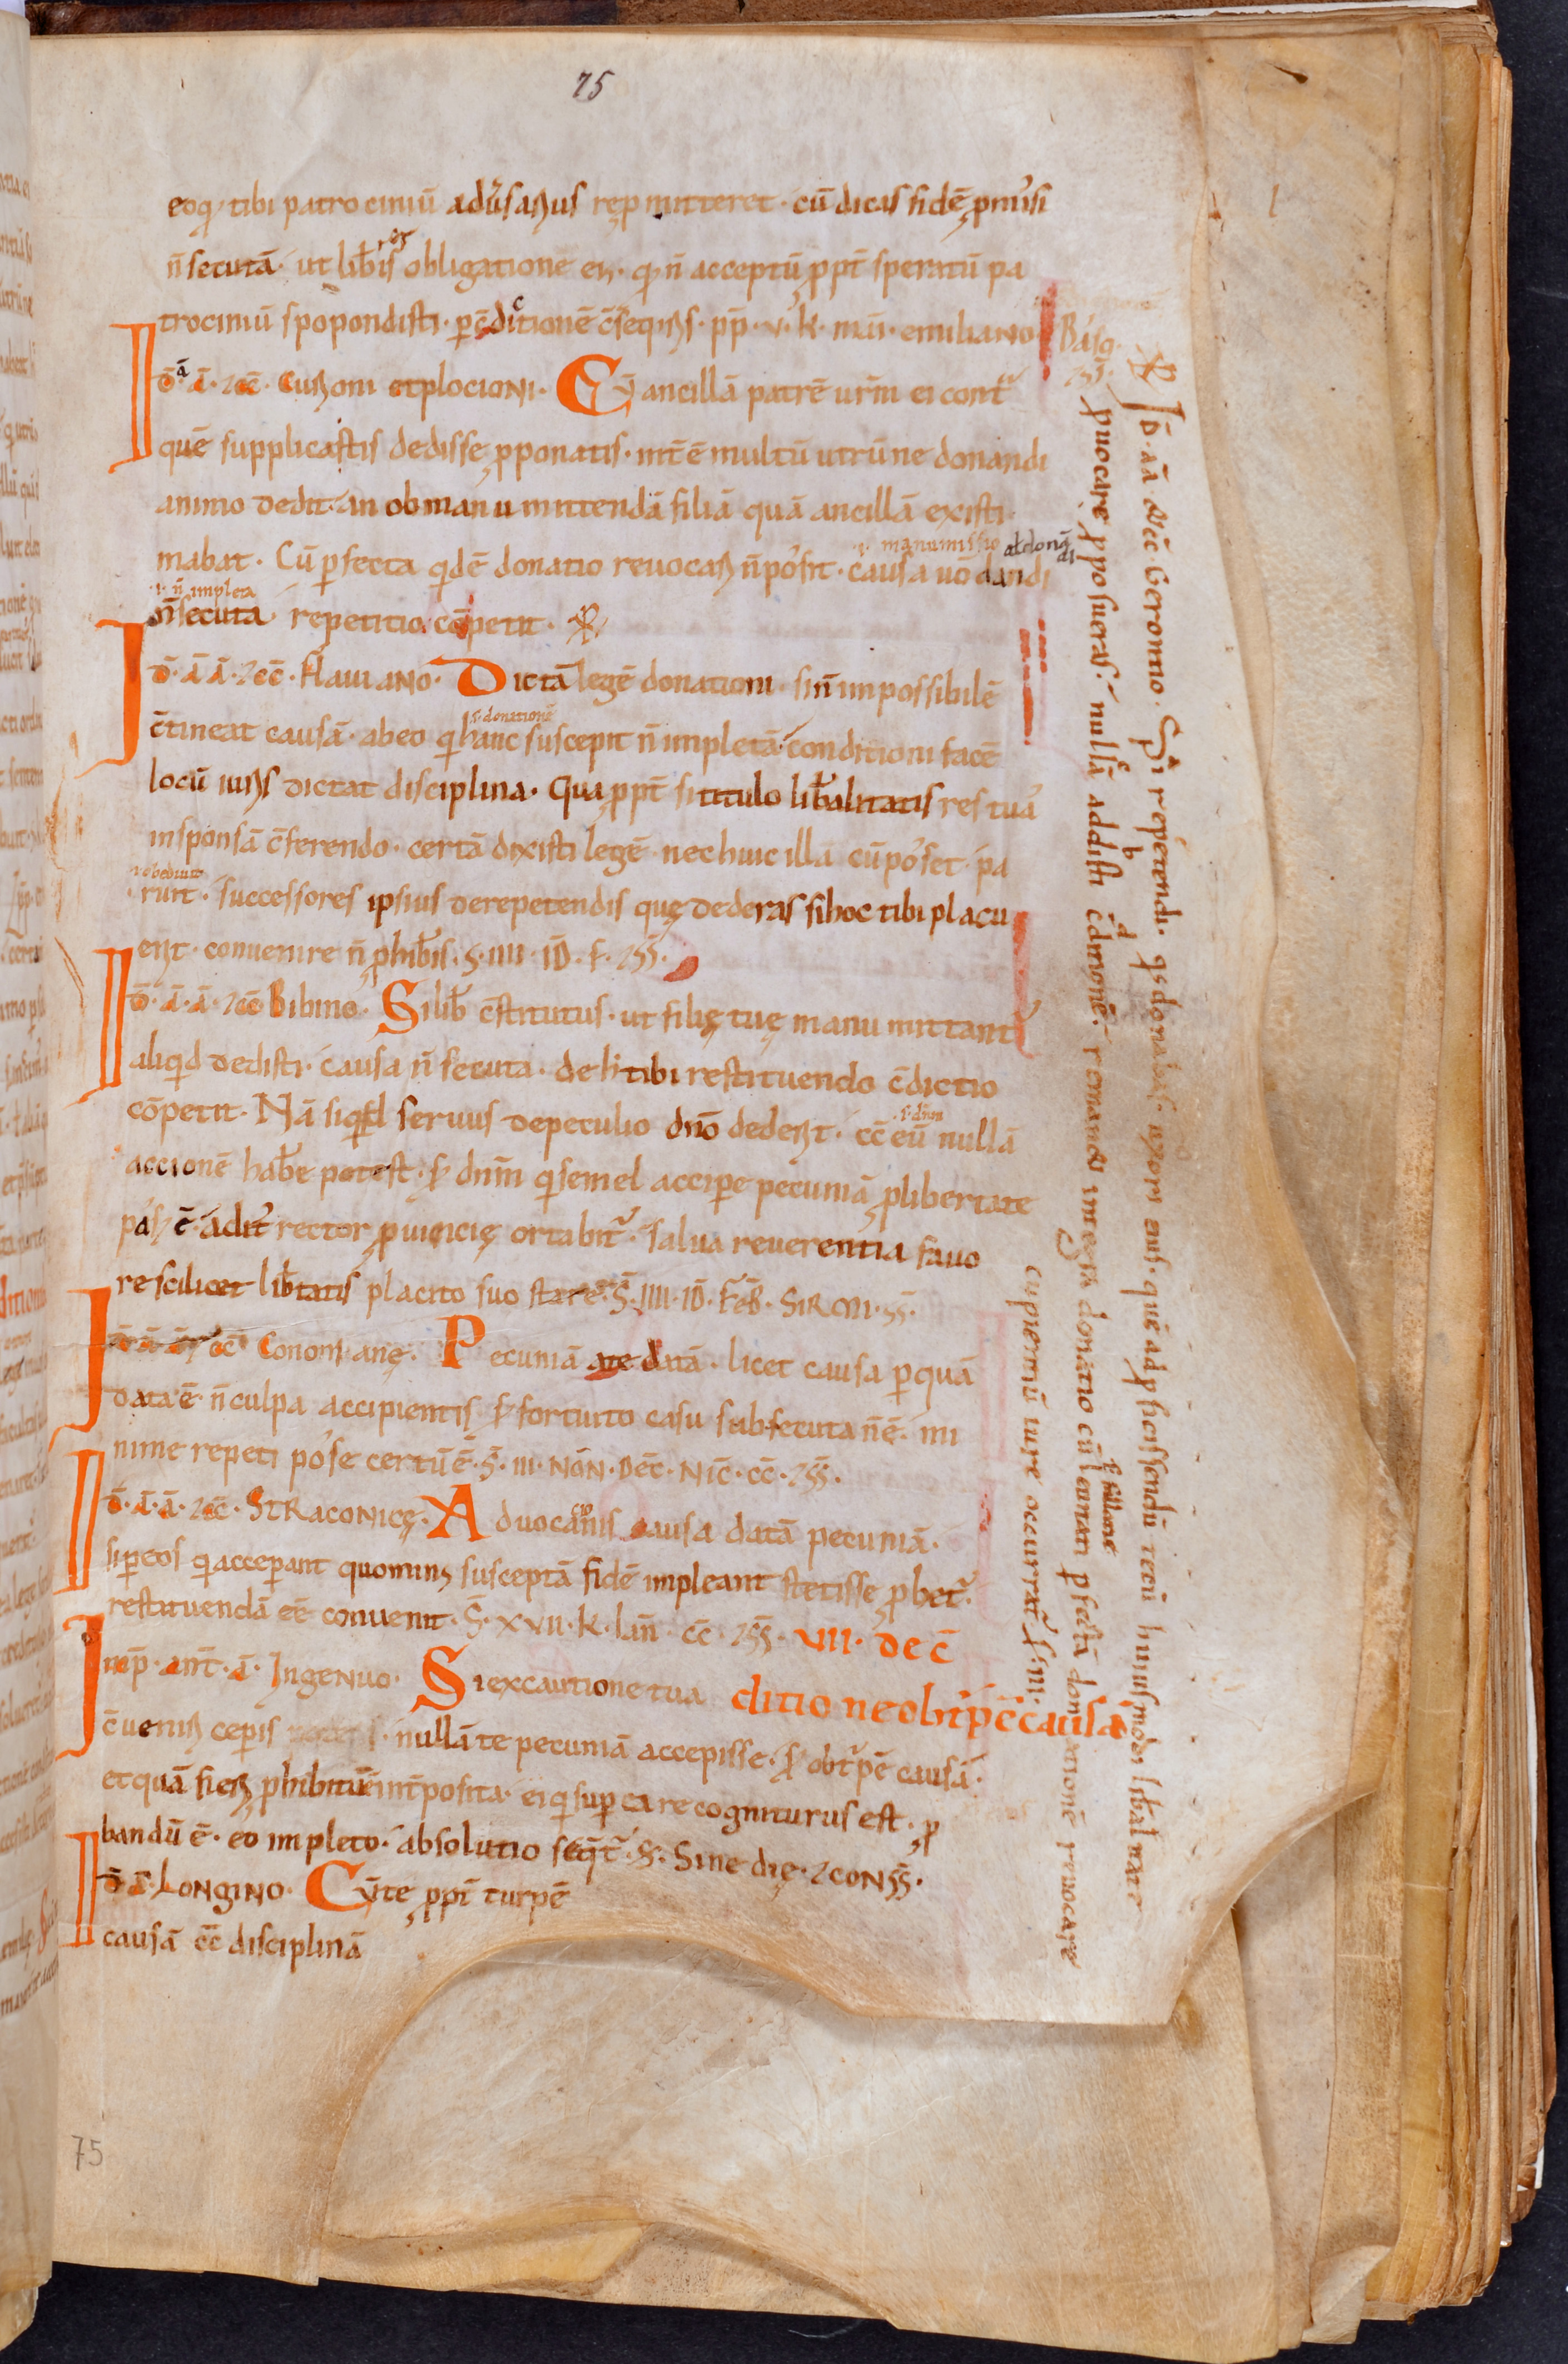 75
eoq; tibi patrociniũ adũsariuſ rep mitteret · cũ dicaſ fidẽ pmisi
ñ secutã · ut lib̄is obligatione ee · q ñ acceptũ ppt̄ speratũ pa
trociniũ spopondisti · p c̄ditionẽ c̄seq̄ris · pp̄ · v · k · mai · emiliano
Id̄ · ā · ⁊ cc̄ · Cuꝛioni et plocioni · Cũ ancillã patrẽ urm̄ ei cont̄
quẽ supplicastis dedisse pponatis · int̄ẽ multũ utrũne donandi
animo dedit · an ob manumittendã filiã quã ancillã existi
.i. manumissio al donã di
mabat · Cũ pfecta qdẽ donatio reuocari ñ posit · causa uo dandi
.i. ñ impleta
ñ secuta · repetitio cõpetit ·
Id̄ · ā ā · ⁊ cc̄ · Flauiano · Dictã legẽ donationi · si ñ impossibilẽ
.s. donationẽ
c̄tineat causã · ab eo q hanc suscepit ñ impletã · conditioni facẽ
locũ iuris dictat disciplina · Qua ppt̄ si titulo lib̄alitatis res tua
in sponsã c̄ferendo · certã dixisti legẽ · nec huic illa cũ poset · pa
.i. obediunt
runt · successores ipsius de repetendis quę dederas si hoc tibi placu
erit · conuenire ñ phib̄is · S · IIII · ID · F · ⁊ ss̄ ·
Id̄ · ā · ā · ⁊ cc̄ Bibino · Si lib̄ c̄stitutus · ut filię tuę manu mittant
aliqd dedisti · causa ñ secuta · de h tibi restituendo c̄dictio
.s. dnm
cõpetit · Nã si qd seruus de peculio dño dederit · cc̄ eũ nullã
accionẽ hab̄e potest · s; dnm̄ q semel accipe pecuniã p libertate
pasus ẽ · adit̄ rector puincię ortabit̄ · salua reuerentia fauo
re scilicet lib̄tatis placito suo stare · S · IIII · ID · Feb̄ · SIRMI · ss̄ ·
Id̄ ā ā ⁊ cc̄ Cononianę · Pecuniã a te datã · licet causa p quã
data ẽ · ñ culpa accipientis s; fortuito casu subsecuta ñ ẽ · mi
nime repeti pose certũ ẽ · S · III · NON · DEC̄ · NIC̄ · CC̄ · ⁊ ss̄ ·
Id̄ · ā · ā · ⁊ cc̄ · STRAconicę · Aduocationis causa datã pecuniã ·
si p eos q acceperant quominus susceptã fidẽ impleant stetisse pbet̄ ·
restituendã eẽ conuenit · S · XVII · K · Ian̄ · cc̄ · ⁊ ss̄ · VII · de c̄
Imp̄ · ant̄ · ā · Ingenuo · Si ex cautione tua ditio ne ob t̄pẽ causã
c̄uenis cepis · nullã te pecuniã accepisse · s; ob t̄pẽ causã ·
et quã fieri phibitũ ẽ int̄posita · ei q sup ea re cogniturus est · p
bandũ ẽ · eo impleto · absolutio seqt̄ · S · Sine dię · ⁊ conss̄ ·
Id̄ ā · Longino · Cũ te ppt̄ turpẽ
causã cc̄ disciplinã
Id̄ · aā ⁊ cc̄ Gerontio · Si repetendi · qs donabas uxori eius · quẽ ad pficiscendũ tecũ huiusmodi lib̄alitate
puocare pposueras · nullã addisti c̄ditionẽ · remanet integra donatio cũ leuitati pfectã donationẽ reuocare
cupientiũ iure occurrat̄
75